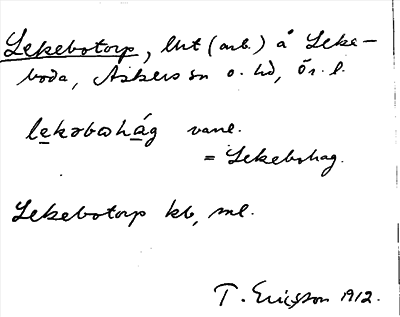 Lekebotorp, lht (arb.) å Leke-
boda, Askers sn o. hd, Ör. l.
lekəbohág vanl.
= Lekebohag.
Lekebotorp kb, ml.
T. Ericsson 1912.